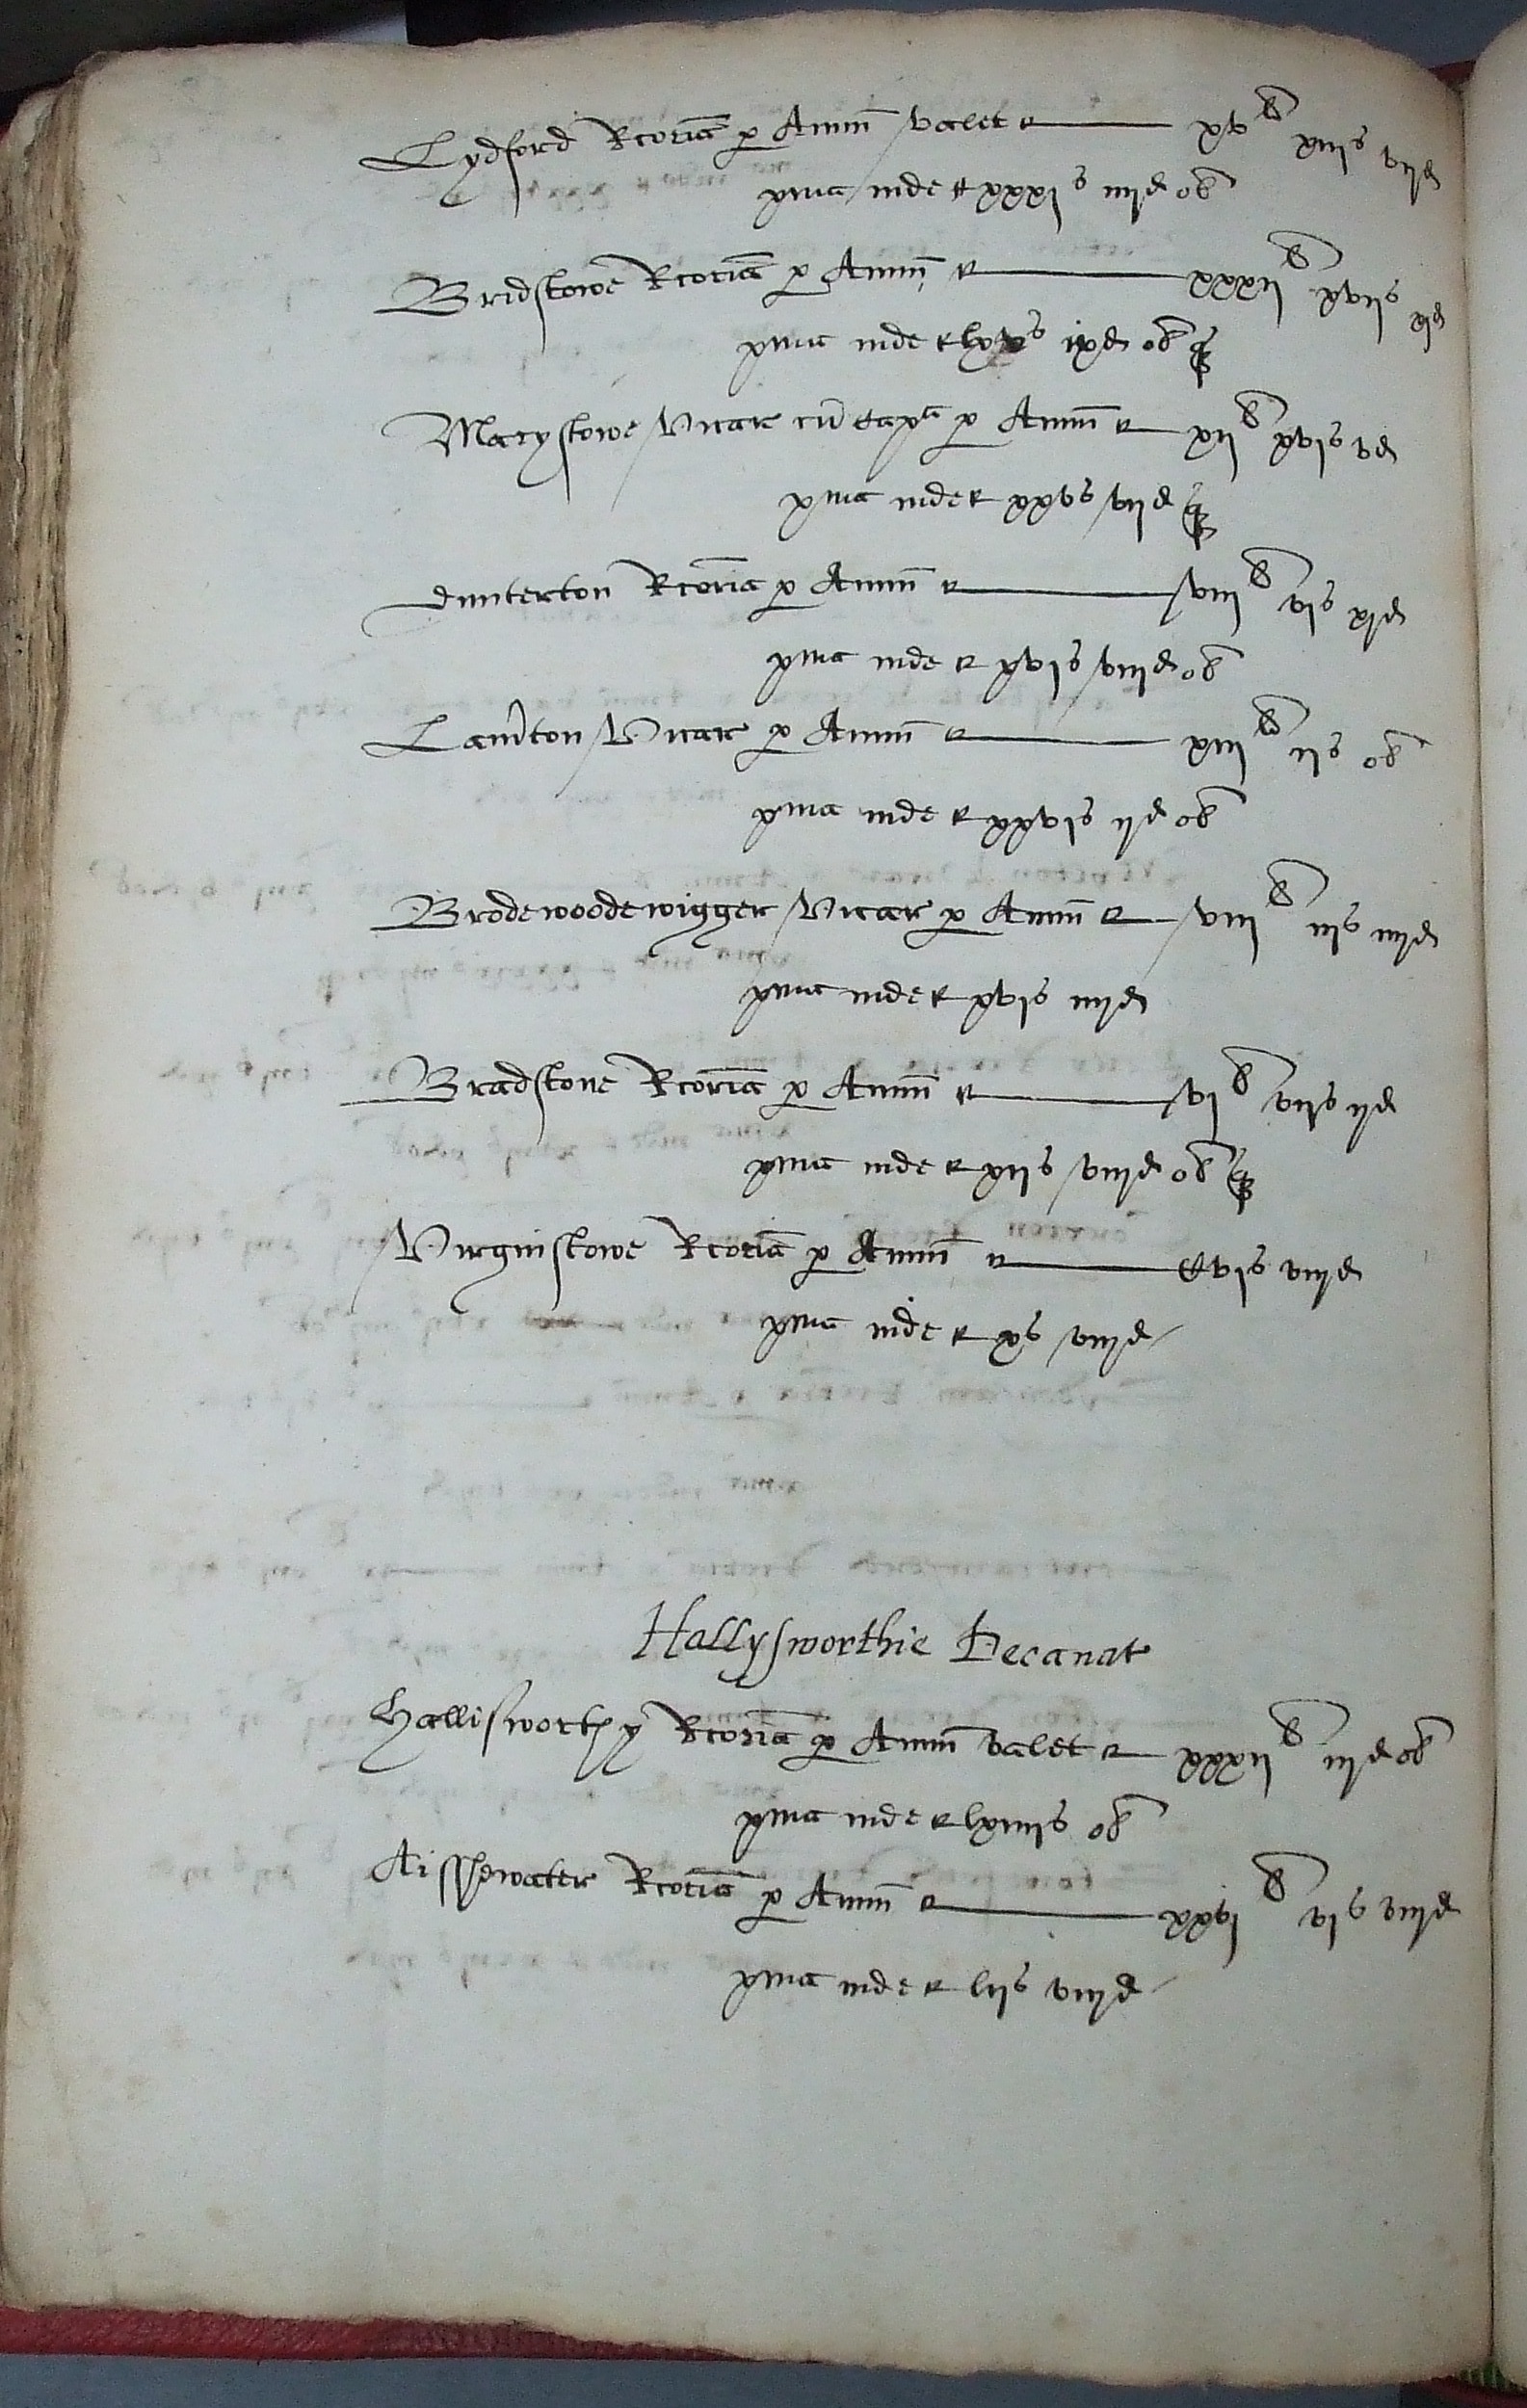 Lydford Rcoria p Annu valet ——— xv li xiiis viid
xma inde xxxis iiijd ob
Bridstowe Rcoria p Annu ——— xxxij li xviis xjd
xma inde lxvs ixd ob q
Marystowe Vicar cu capa p Annu — xij li xvis vd
xma inde xxvs vijd q
dunterton Rcoria p Annu ——— viij li vis xjd
xma inde xvis viijd ob
Lamton Vicar p Annu ——— xiij li ijs ob
xma inde xxvis ijd ob
Brodewoodewigger Vicar p Annu — viij li iijs iiijd
xma inde xvis iiijd
Bradstone Rcoria p Annu ——— vj li vijs ijd
xma inde xijs viijd ob q
Virginstowe Rcoria p Annu ——— Cvis viijd
xma inde xs viijd
Hallysworthie Decanat
Hallisworthy Rcoria p Annu valet — xxxij li iijd ob
xma inde lxiiijs ob
Aisshewater Rcoria p Annu ——— xxvj li vis viijd
xma inde lijs viijd